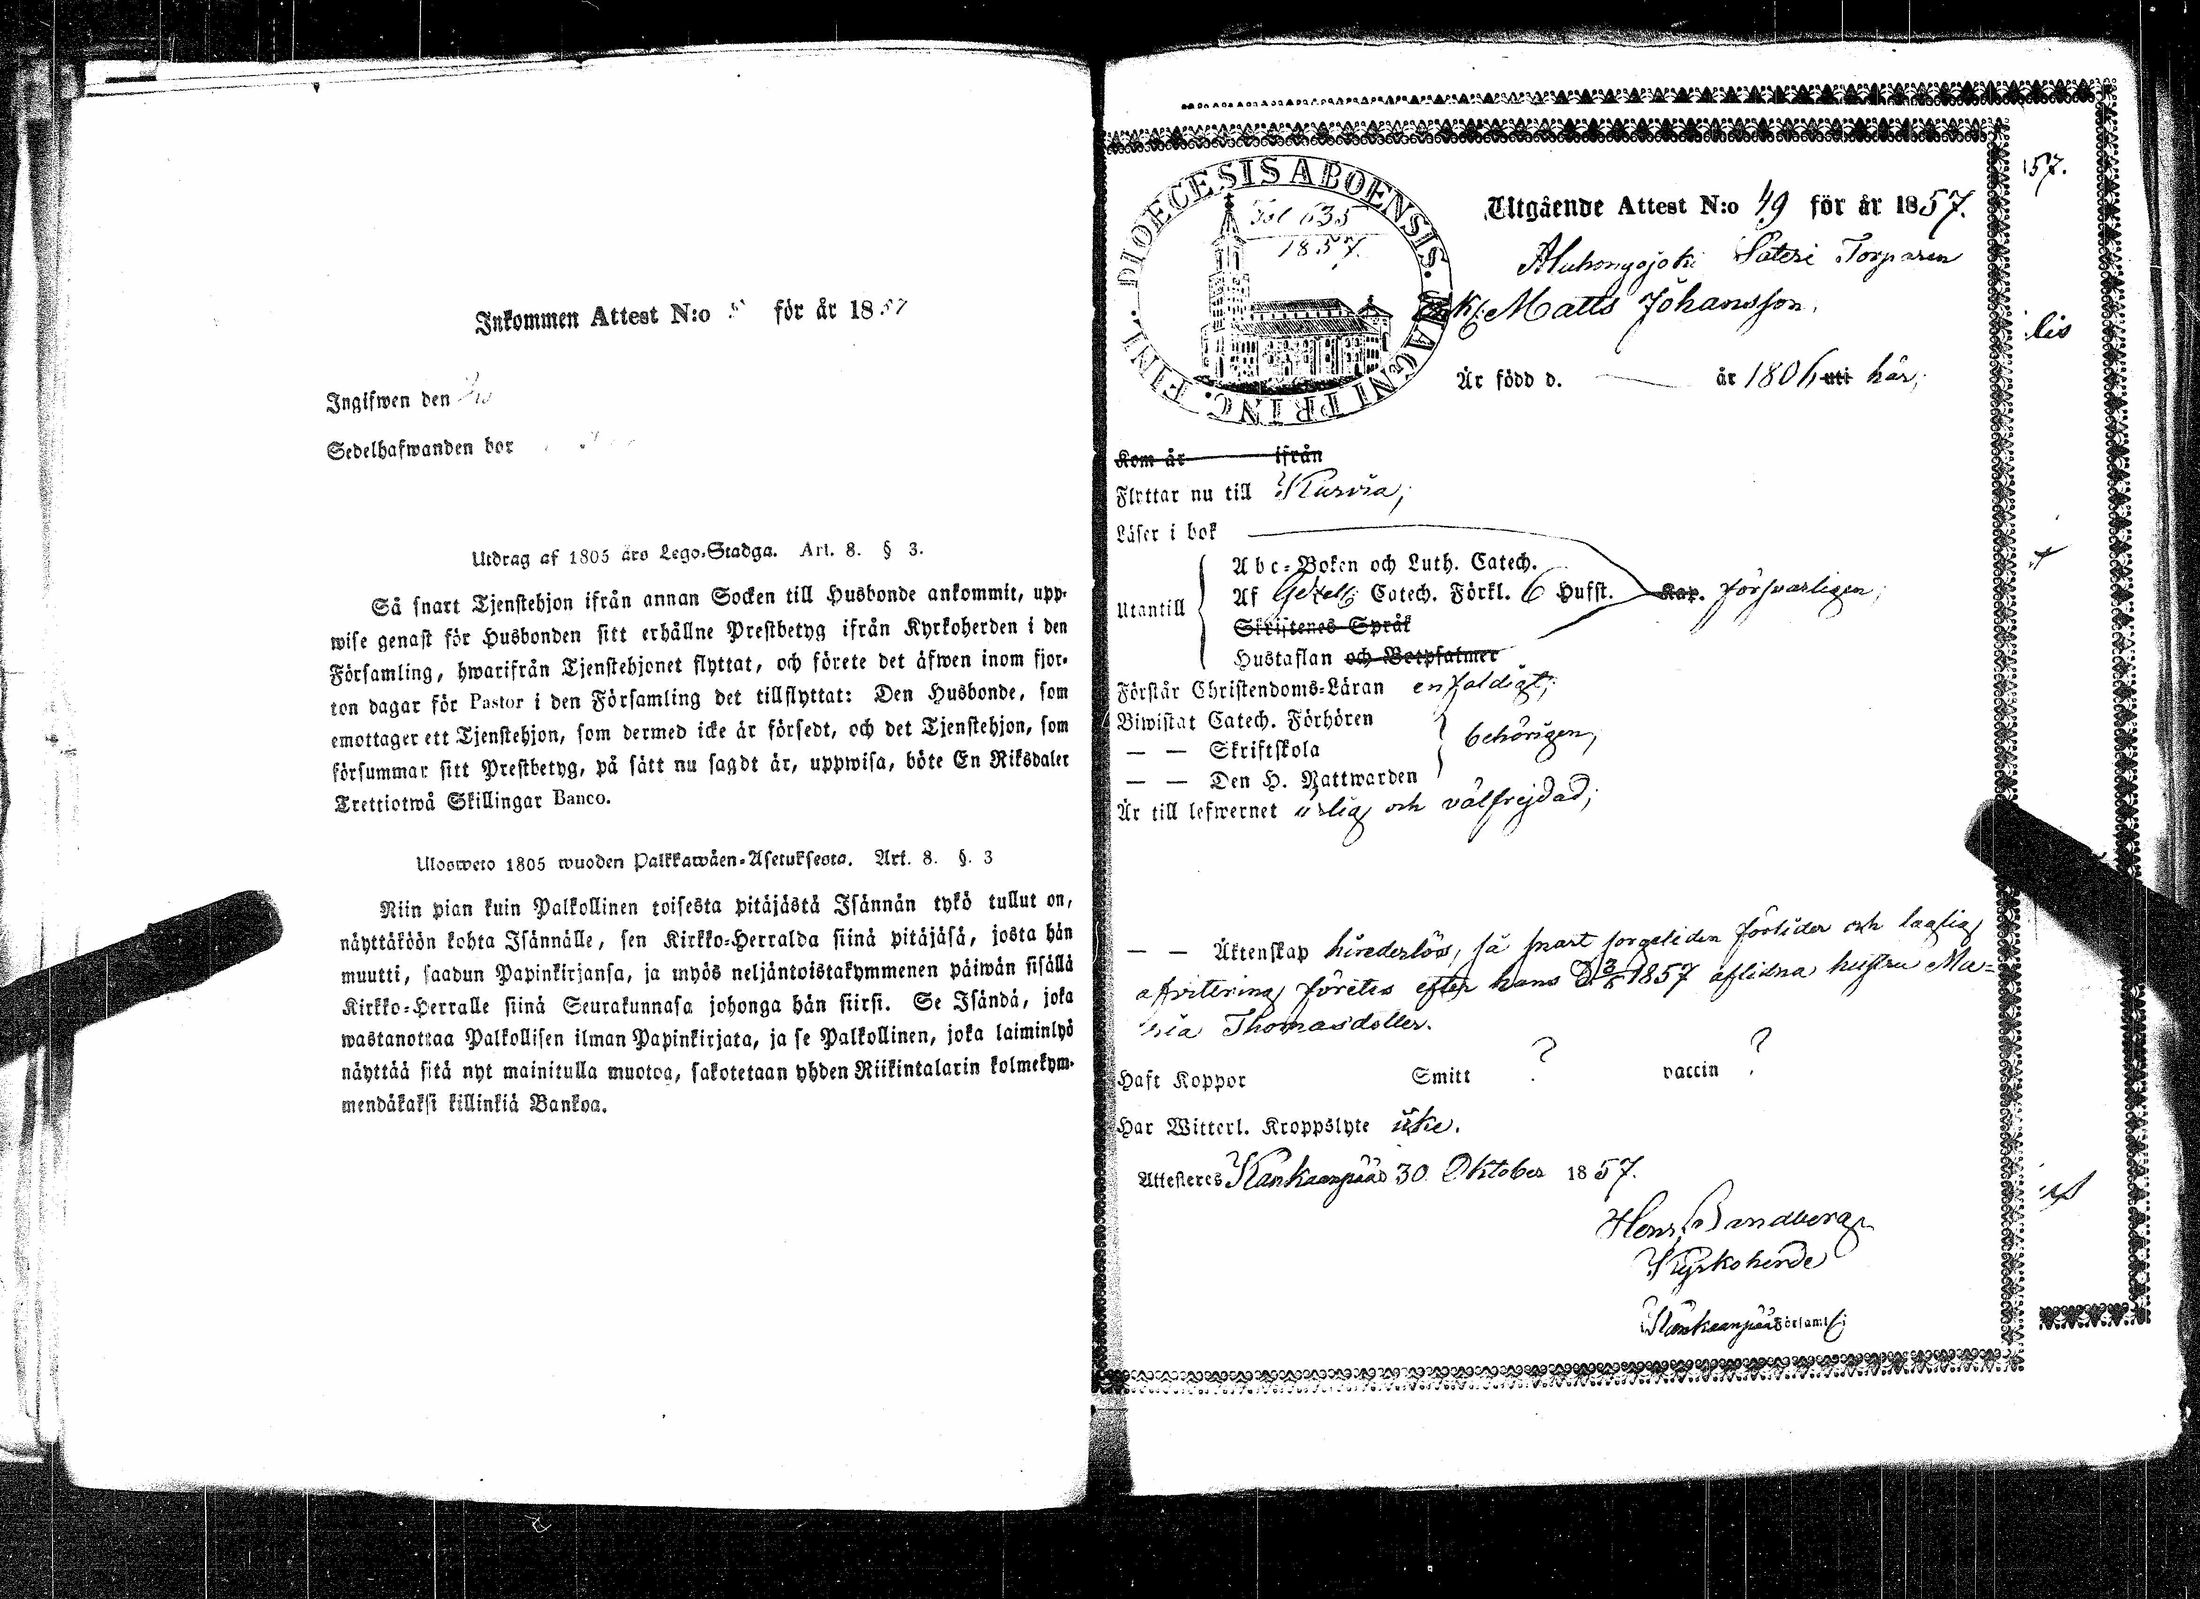 Inkommen Attest N:o 5 för år 1857
Ingifwen den
Sedelhafwanden bor
Utdrag af 1805 års Lego-Stadga. Art. 8. § 3.
Så snart Tjenstehjon ifrån annan Socken till Husbonde ankommit, upp-
wise genast för Husbonden sitt erhållne Prestbetyg ifrån Kyrkoherden i den
Församling, hwarifrån Tjenstehjonet flyttat, och förete det äfwen inom fjor-
ton dagar för Pastor i den Församling det tillflyttat: Den Husbonde, som
emottager ett Tjenstehjon, som dermed icke är försedt, och det Tjenstehjon, som
försummar sitt Prestbetyg, på sätt nu sagdt är, uppwisa, böte En Riksdaler
Trettiotwå Skillingar Banco.
Ulosweto 1805 wuoden Palkkawäen-Asetuksesta. Art. 8. §. 3
Niin pian kuin Palkollinen toisesta pitäjästä Isännän tykö tullut on,
näyttäköön kohta Isännälle, sen Kirkko-Herralda siinä pitäjäsä, josta hän
muutti, saadun Papinkirjansa, ja myös neljäntoistakymmenen päiwän sisällä
Kirkko-Herralle siinä Seurakunnasa johonga hän siirsi. Se Isändä, joka
wastanottaa Palkollisen ilman Papinkirjata, ja se Palkollinen, joka laiminlyö
näyttää sitä nyt mainitulla muotoa, sakotetaan yhden Riikintalarin kolmekym-
mendäkaksi killinkiä Bankoa.
DIOECESIS ABOENSIS. MAGNI PRINC. FINL.
Fol 635
1857.
Utgående Attest N:o 49 för år 1857.
Säteri Torparen
Enk. Matts Johansson.
Är född d. år 1806 uti här;
Kom år ifrån
Flyttar nu till Kurvia;
Läser i bok
Utantill
Abc-Boken och Luth. Catech.
Af Gezelii Catech. Förkl. 6 Hufst. Kap. försvarligen;
Skriftenes Språk
Hustaflan och Botpsalmer
Förstår Christendoms-Läran enfaldigt;
Biwistat Catech. Förhören
— — Skriftskola behörigen;
— — Den H. Nattwarden
Är till lefwernet ärlig och välfrejdad;
— — Äktenskap hinderlös, så snart sorgetiden förlider och laglig
afvitring företes efter hans d. 3/5 1857 aflidna hustru Ma-
ria Thomasdotter.
Haft Koppor Smitt ? vaccin ?
Har Witterl. Kroppslyte icke.
Attesteres Kankaanpää 30 Oktober 1857.
Henr. Sandberg
Kyrkoherde
Kankaanpää Församl:
57.
lis